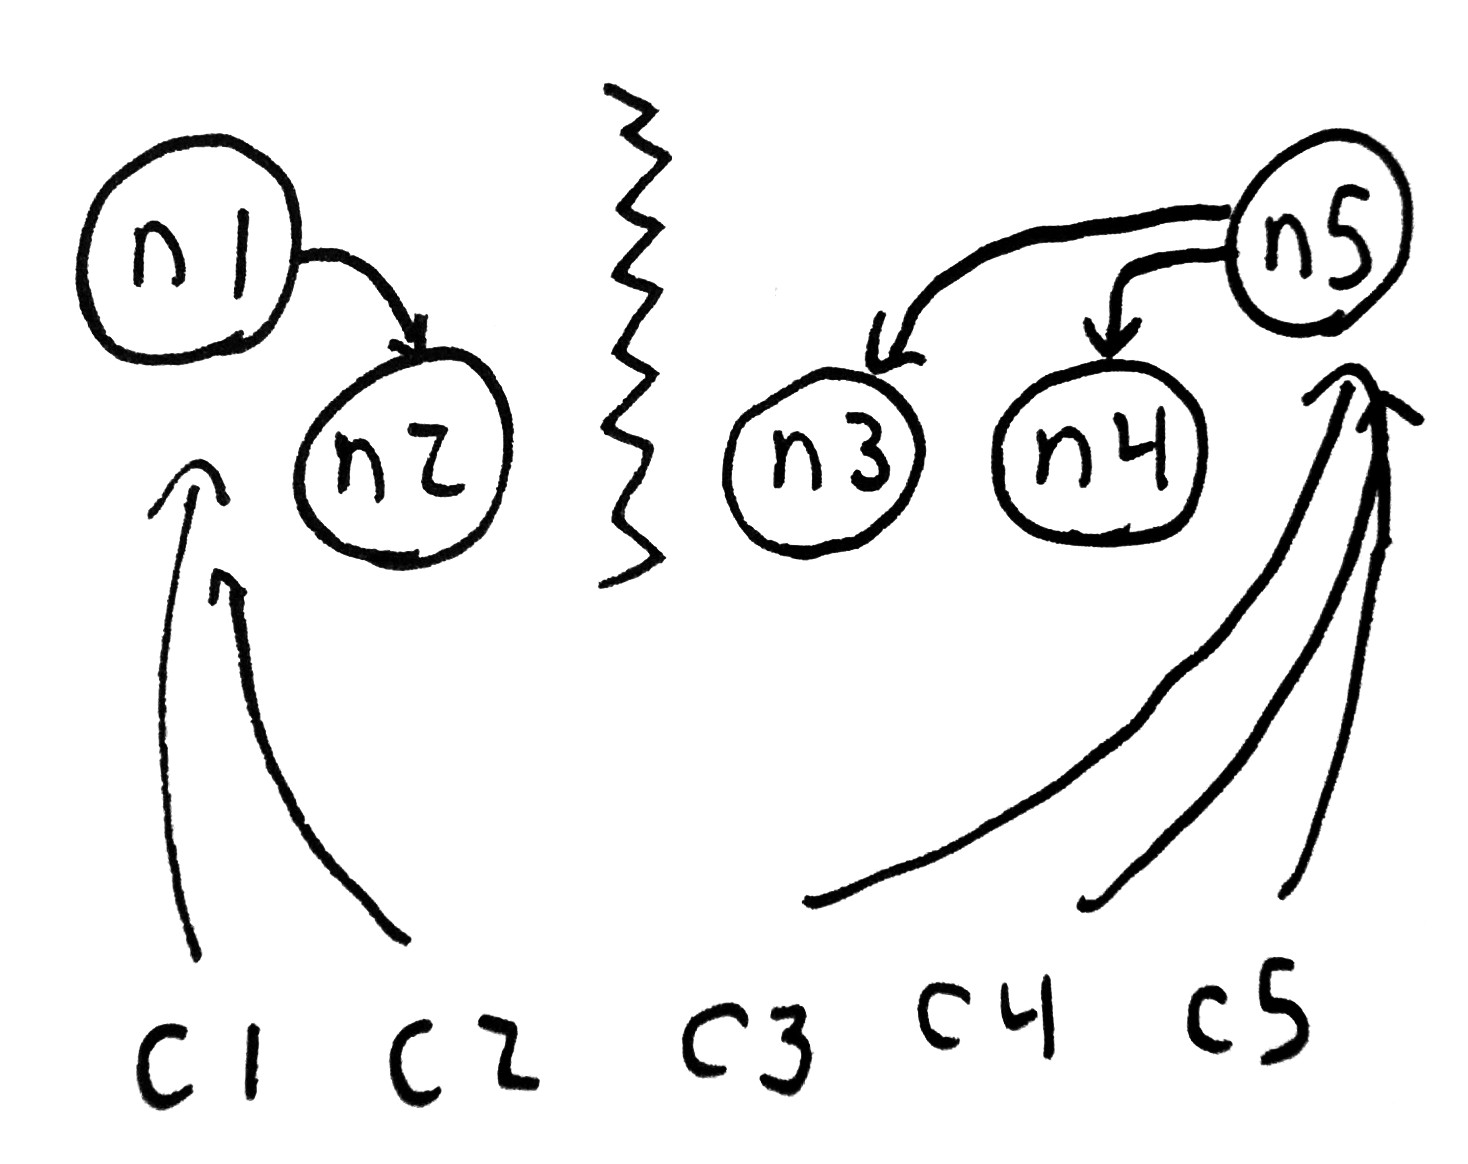 n1
n2
n3
n4
n5
c1
c2
c3
c4
c5